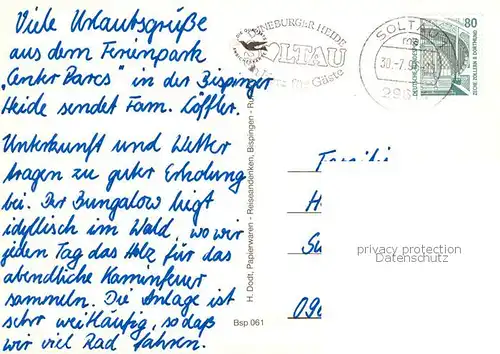 Viele Urlaubsgrüße
aus dem Ferienpark
„Center Parcs" in der Bispinger
Heide sendet Fam. Löffler.
Unterkunft und Wetter
tragen zu guter Erholung
bei. Der Bungalow liegt
idyllisch im Wald, wo wir
jeden Tag das Holz für das
abendliche Kaminfeuer
sammeln. Die Anlage ist
sehr weitläufig, so daß
wir viel Rad fahren.
H. Dodt, Papierwaren - Reiseandenken, Bispingen
Bsp 061
LÜNEBURGER HEIDE
SOLTAU
für Gäste
SOLTAU
30.-7.9
296
80
DEUTSCHE BUNDESPOST
ZECHE ZOLLERN II DORTMUND
privacy protection
Datenschutz